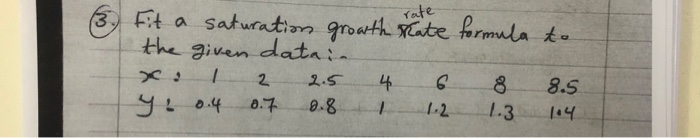 ③. Fit a saturation growth rate formula to
the given data:-
x: 1 2 2.5 4 6 8 8.5
y: 0.4 0.7 0.8 1 1.2 1.3 1.4